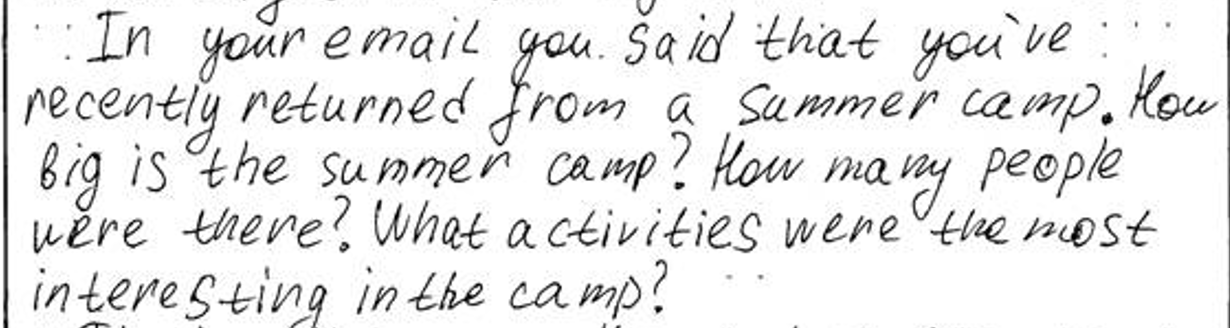 In your email you said that you've
recently returned from a summer camp. How
big is the summer camp? How many people
were there? What activities were the most
interesting in the camp?